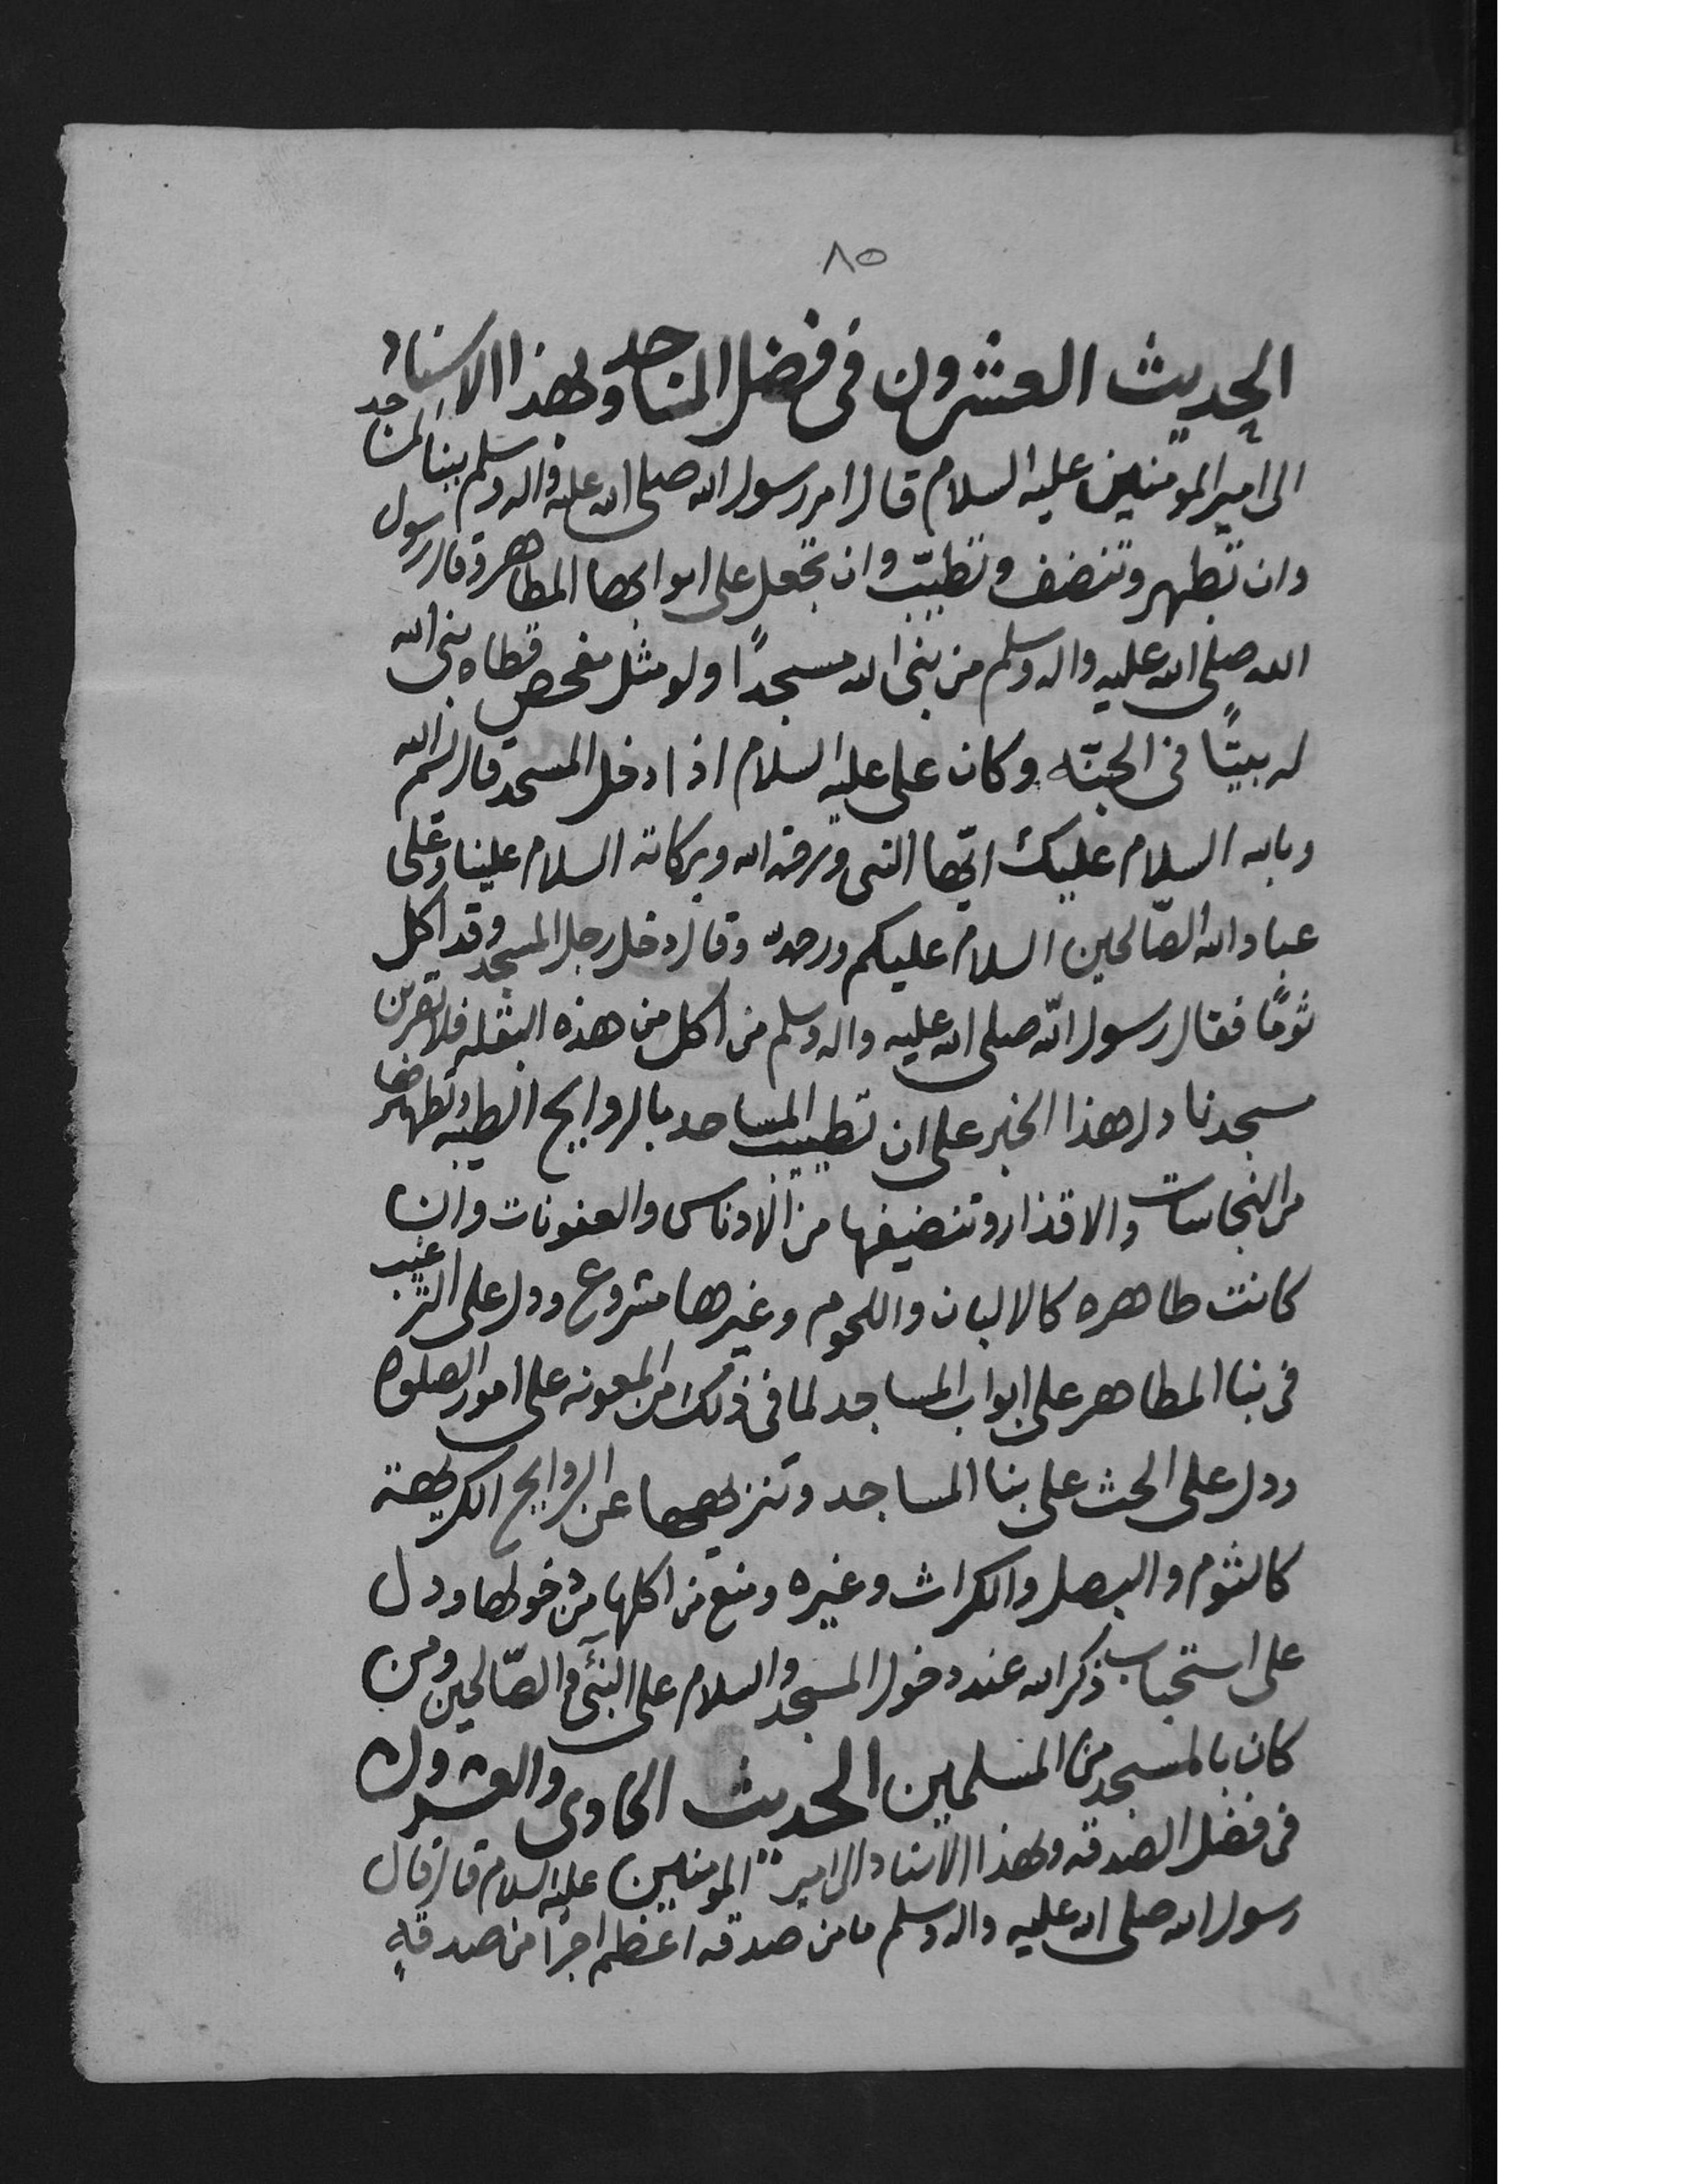 ٨٥
الحديث العشرون في فضل المساجد وبهذا الاسناد
الى امير المومنين عليه السلام قال امر رسول الله صلى الله عليه واله وسلم ببنا المساجد
وان تطهر وتنضف وتطيّب وان تجعل على ابوابها المطاهر وقال رسول
الله صلى الله عليه واله وسلم من بنى لله مسجدًا ولو مثل مفحص قطاه بنى الله
له بيتًا في الجنّه وكان علي عليه السلام اذا دخل المسجد قال بسم الله
وبالله السلام عليك ايّها النبي ورحمة الله وبركاته السلام علينا وعلى
عباد الله الصّالحين السلام عليكم ورحمة الله وقال دخل رجل المسجد وقد اكل
ثومًا فقال رسول الله صلى الله عليه واله وسلم من اكل من هذه البقله فلا يقربن
مسجدنا دل هذا الخبر على ان تطييب المساجد بالروايح الطيبه وتطهيرها
من النجاسات والاقذار وتنضيفها من الادناس والعفونات وان
كانت طاهره كالالبان واللحوم وغيرها مشروع ودل على الترغيب
في بنا المطاهر على ابواب المساجد لما في ذلك من المعونه على امور الصلوه
ودل على الحث على بنا المساجد وتنزيهها عن الروايح الكريهة
كالثوم والبصل والكراث وغيره ومنع من اكلها من دخولها ودل
على استحباب ذكر الله عند دخول المسجد والسلام على النبي والصّالحين ومن
كان بالمسجد من المسلمين الحديث الحادي والعشرون
في فضل الصدقه وبهذا الاسناد الى امير المومنين عليه السلام قال قال
رسول الله صلى الله عليه واله وسلم ما من صدقه اعظم اجرًا من صدقةٍ